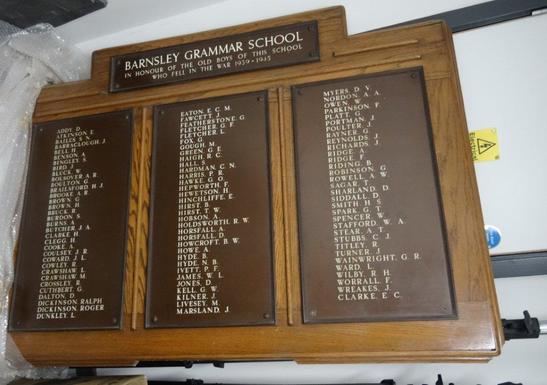 BARNSLEY GRAMMAR SCHOOL
IN HONOUR OF THE OLD BOYS OF THIS SCHOOL
WHO FELL IN THE WAR 1939-1945
ADDY, D.
ATKINSON, E.
BAILES, S. V.
BARRACLOUGH, J.
BELL, H.
BENSON, A.
BINGLEY, S.
BIRD, J.
BLUCK, W.
BOLSOVER, A. R.
BOULTON, G.
BRAILSFORD, H. J.
BROOKE, A. R.
BROWN, G.
BROWN, H.
BRUCK, P.
BURDON, S.
BURNS, A.
BUTCHER, J. A.
CLARKE, H.
CLEGG, H.
COOKE, A.
COULSEY, J. R.
COWARD, J. L.
COWLEY, R.
CRAWSHAW, L.
CRAWSHAW, M.
CROSSLEY, R.
CUTHBERT, G.
DALTON, D.
DICKINSON, RALPH
DICKINSON, ROGER
DUNKLEY, L.
EATON, E. C. M.
FAWCETT, J.
FEATHERSTONE, G.
FLETCHER, G. F.
FLETCHER, L.
FOX, G.
GOUGH, M.
GREEN, G. E.
HAIGH, R. C.
HALL, S.
HARDMAN, C. N.
HARRIS, P. R.
HAWKE, G. O.
HEPWORTH, F.
HEWETSON, H.
HINCHLIFFE, E.
HIRST, B.
HIRST, T. W.
HOBSON, A.
HOLDSWORTH, R. W.
HORSFALL, A.
HORSFALL, D.
HOWCROFT, B. W.
HOWE, A.
HYDE, B.
HYDE, N. B.
IVETT, P. F.
JAMES, W. L.
JONES, D.
KELL, G. W.
KILNER, J.
LIVESEY, M.
MARSLAND, J.
MYERS, D. V.
NORDON, A. A.
OWEN, W.
PARKINSON, F.
PLATT, G.
PORTMAN, J.
POULTER, J.
RAYNER, G.
REYNOLDS, J.
RICHARDS, J.
RIDGE, A.
RIDGE, F.
RIDING, B.
ROBINSON, G.
ROWELL, A. W.
SAGAR, T.
SHARLAND, D.
SIDDALL, D.
SMITH, H. S.
SPARK, G. T.
SPENCER, W.
STAFFORD, W. A.
STEAR, A. T.
STUBBS, C. J.
TITLEY, R.
TURNER, J.
WAINWRIGHT, G. R.
WARD, L.
WILBY, R. H.
WORRALL, F.
WREAKES, J.
CLARKE, E. C.